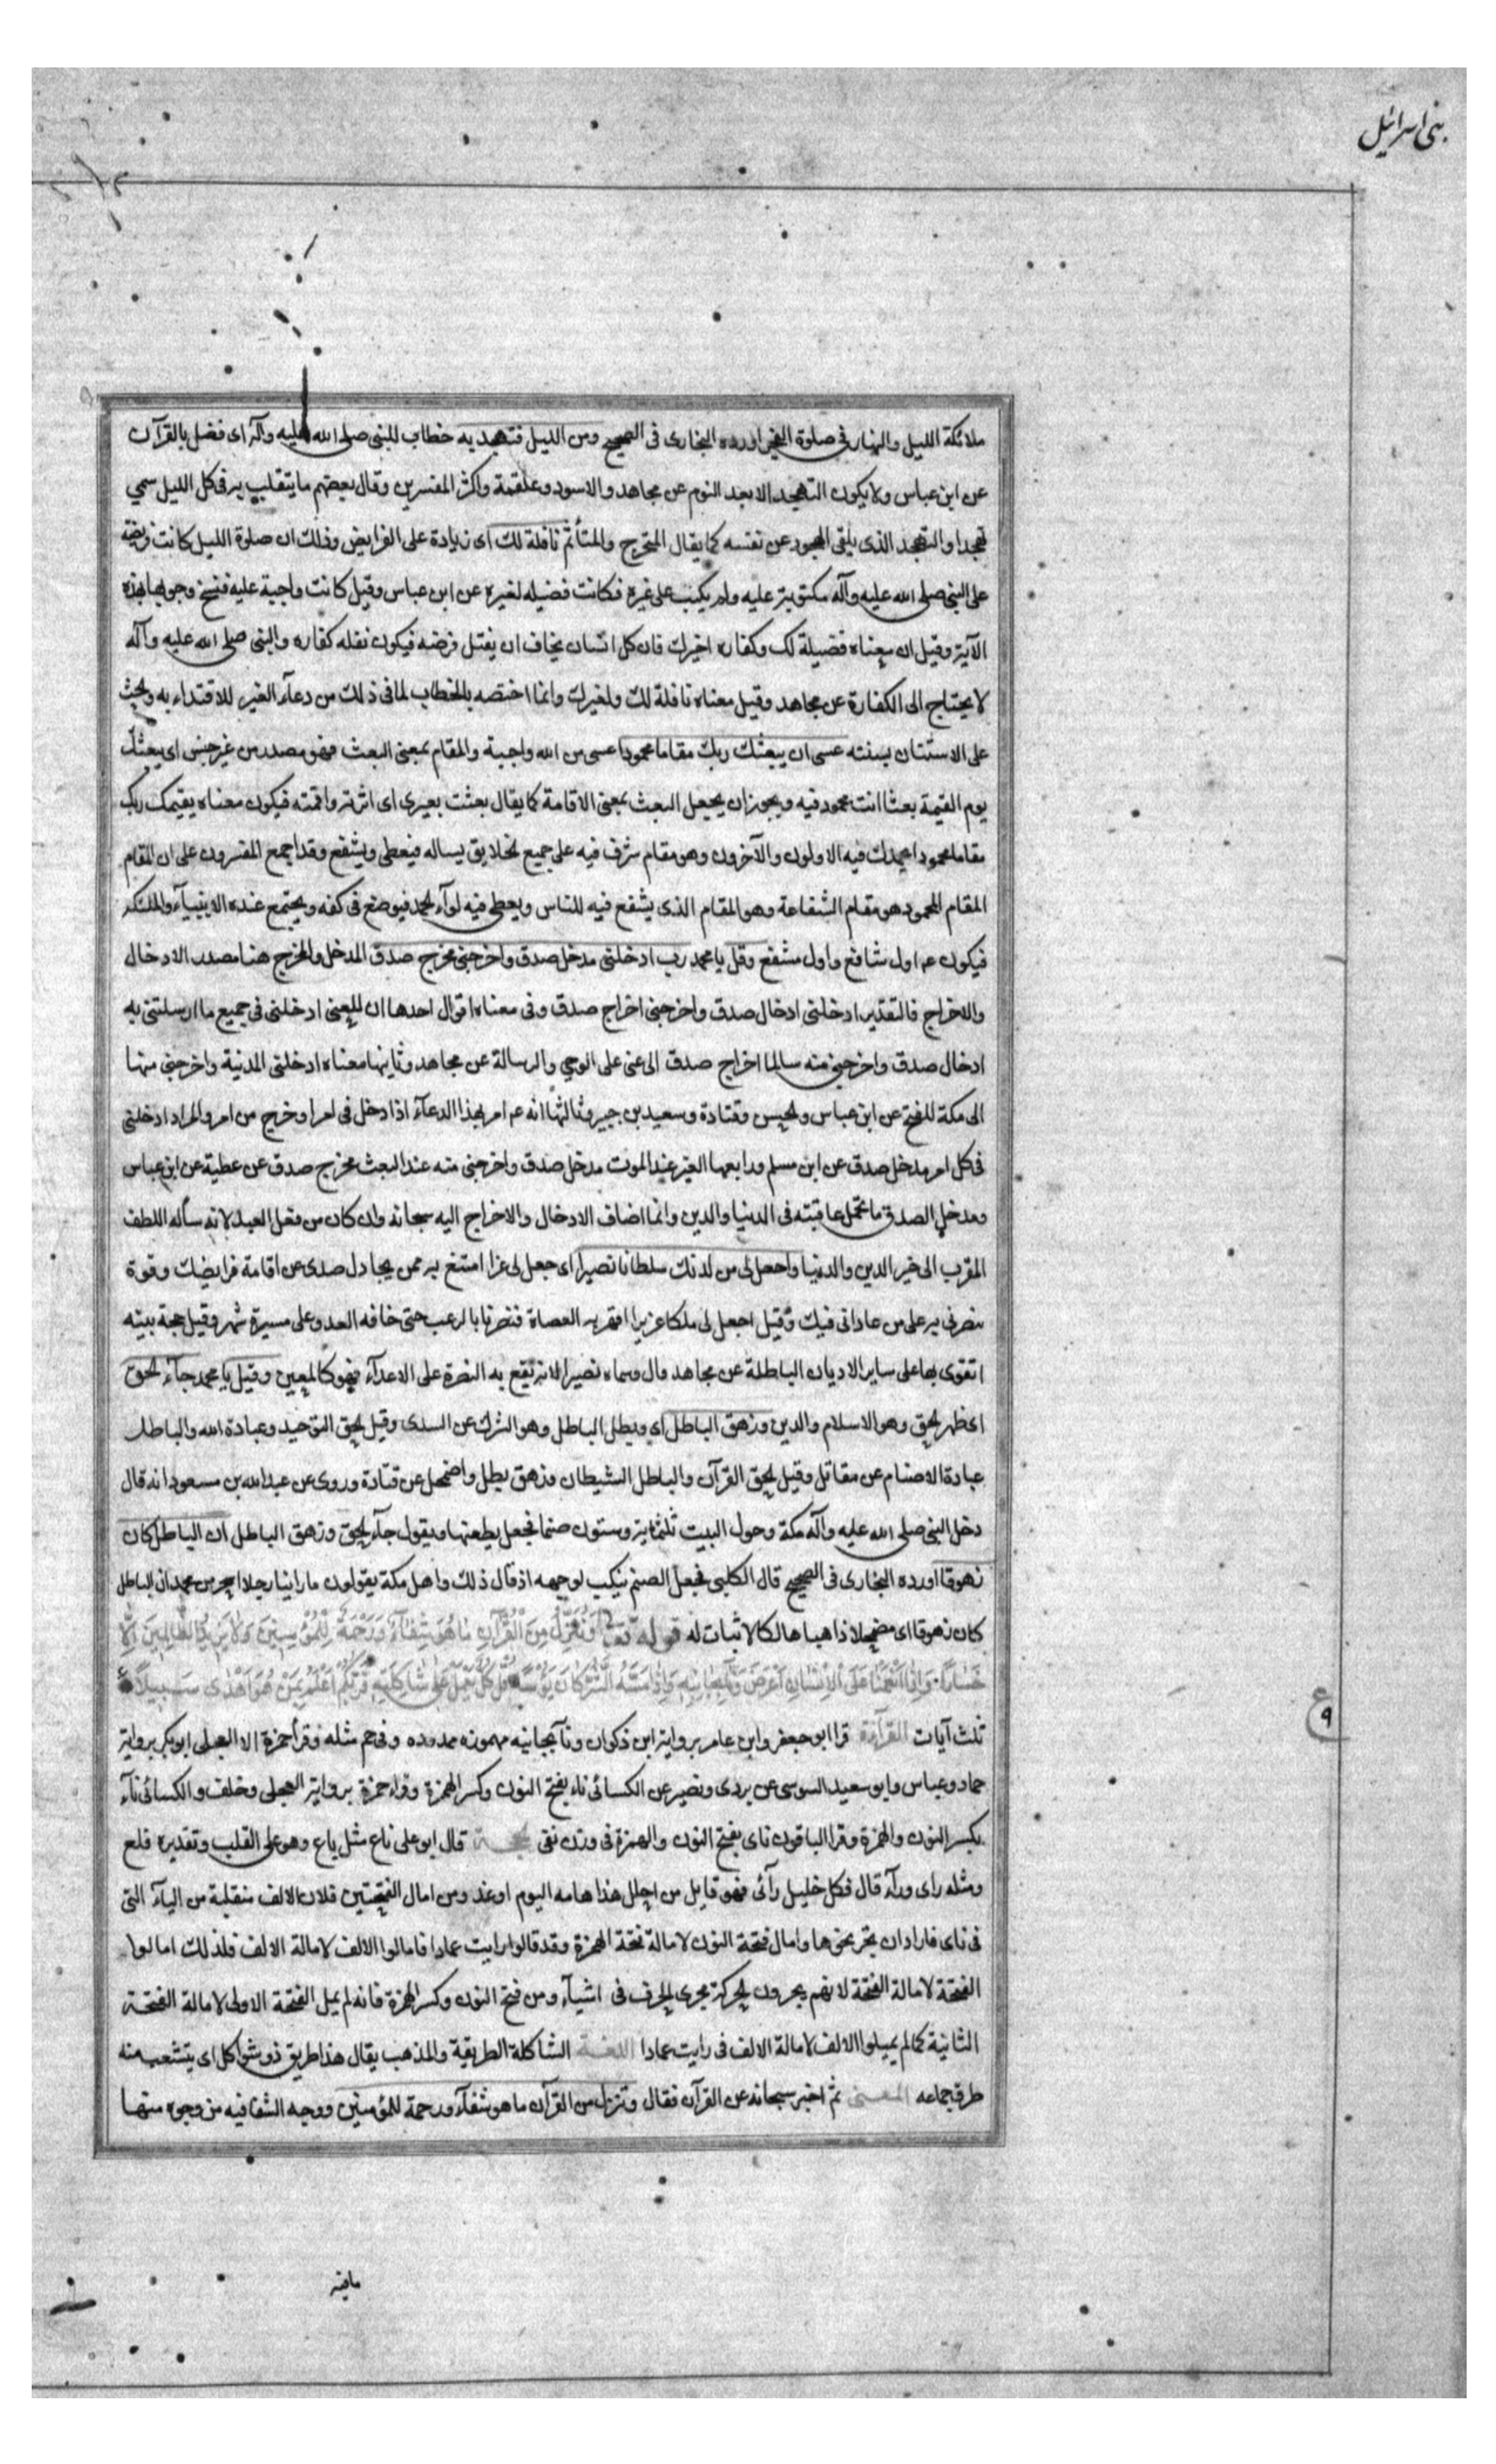 بنی اسرائیل
ملائكة الليل والنهار فى صلوة الفجر اورده البخارى فى الصحيح ومن الليل فتهجد به خطاب للنبى صلى الله عليه وآله اى فصل بالقرآن
عن ابن عباس ولا يكون التهجد الا بعد النوم عن مجاهد والاسود وعلقمة واكثر المفسرين وقال بعضهم ما يتقلب به فى كل الليل سمي
تهجدا والمتهجد الذى يلقى الهجود عن نفسه كما يقال المتحرج والمتأثم نافلة لك اى زيادة على الفرايض وذلك ان صلوة الليل كانت فريضة
على النبى صلى الله عليه وآله مكتوبة عليه ولم يكتب على غيره فكانت فضيله لغيره عن ابن عباس وقيل كانت واجبة عليه فنسخ وجوبها بهذه
الآية وقيل ان معناه فضيلة لك وكفاره لغيرك فان كل انسان يخاف ان يفتل فرضه فيكون نفله كفاره والنبى صلى الله عليه وآله
لا يحتاج الى الكفارة عن مجاهد وقيل معناه نافلة لك ولغيرك وانما اختصه بالخطاب لما فى ذلك من دعآء الغير للاقتداء به والحث
على الاستنان بسنته عسى ان يبعثك ربك مقاما محمودا عسى من الله واجبة والمقام بمعنى البعث فهو مصدر من غير جنس اى يبعثك
يوم القيمة بعثا انت محمود فيه ويجوز ان يجعل البعث بمعنى الاقامة كما يقال بعثت بعيرى اى اثرته واقمته فيكون معناه يقيمك ربك
مقاما محمودا يحمدك فيه الاولون والآخرون وهو مقام شرف فيه على جميع الخلايق يساله فيعطى ويشفع وقد اجمع المفسرون على ان المقام
المقام المحمود هو مقام الشفاعة وهو المقام الذى يشفع فيه للناس ويعطى فيه لوآء الحمد فيوضع فى كفه ويجتمع عنده الانبيآء والملئكة
فيكون عم اول شافع واول مشفع وقل يا محمد رب ادخلنى مدخل صدق واخرجنى مخرج صدق المدخل والمخرج هنا مصدر الادخال
والاخراج فالتقدير ادخلنى ادخال صدق واخرجنى اخراج صدق وفى معناه اقوال احدها ان المعنى ادخلنى فى جميع ما ارسلتنى به
ادخال صدق واخرجنى منه سالما اخراج صدق اى اعنى على الوحي والرسالة عن مجاهد وثانيها معناه ادخلنى المدينة واخرجنى منها
الى مكة للفتح عن ابن عباس والحسن وقتادة وسعيد بن جبير وثالثها انه عم امر بهذا الدعآء اذا دخل فى امر او خرج من امر والمراد ادخلنى
فى كل امر مدخل صدق عن ابن مسلم ورابعها القبر عند الموت مدخل صدق واخرجنى منه عند البعث مخرج صدق عن عطية عن ابن عباس
ومدخل الصدق ما تحمل عاقبته فى الدنيا والدين وانما اضاف الادخال والاخراج اليه سبحانه وان كان من فعل العبد لانه سأله اللطف
المقرب الى خير الدين والدنيا واجعل لى من لدنك سلطانا نصيرا اى اجعل لى عزا امتنع به ممن يحاول صدى عن اقامة فرايضك وقوة
تنصرنى به على من عادانى فيك وقيل اجعل لى ملكا عزيزا اقهر به العصاة فنصرنا بالرعب حتى خافه العدو على مسيرة شهر وقيل حجة بينه
اتقوى بها على ساير الاديان الباطلة عن مجاهد قال وسماه نصيرا لانه يقع به النصرة على الاعدآء فهو كالمعين وقيل يا محمد جآء الحق
اى ظهر الحق وهو الاسلام والدين وزهق الباطل اي وبطل الباطل وهو الشرك عن السدى وقيل الحق التوحيد وعبادة الله والباطل
عبادة الاصنام عن مقاتل وقيل الحق القرآن والباطل الشيطان وزهق بطل واضمحل عن قتادة وروى عن عبد الله بن مسعود انه قال
دخل النبى صلى الله عليه وآله مكة وحول البيت ثلثماية وستون صنما فجعل يطعنها ويقول جآء الحق وزهق الباطل ان الباطل كان
زهوقا اورده البخارى فى الصحيح قال الكلبى فجعل الصنم ينكب لوجهه اذ قال ذلك واهل مكة يقولون ما راينا رجلا اسحر من محمد ان الباطل
كان زهوقا اى مضمحلا ذاهبا هالكا لا ثبات له قوله تعالى وَنُنَزِّلُ مِنَ الْقُرْآنِ مَا هُوَ شِفَآءٌ وَرَحْمَةٌ لِلْمُؤْمِنِينَ وَلَا يَزِيدُ الظَّالِمِينَ اِلَّا
خَسَارًا وَاِذَا اَنْعَمْنَا عَلَى الْاِنْسَانِ اَعْرَضَ وَنَآ بِجَانِبِهِ وَاِذَا مَسَّهُ الشَّرُّ كَانَ يَؤُسًا قُلْ كُلٌّ يَعْمَلُ عَلَى شَاكِلَتِهِ فَرَبُّكُمْ اَعْلَمُ بِمَنْ هُوَ اَهْدَى سَبِيلًا
ع
٩
ثلث آيات القرآءة قرا ابو جعفر وابن عامر برواية ابن ذكوان ونآ بجانبه مهموزه ممدوده وفى حم مثله وقرأ حمزة الا العجلى ابو بكر برواية
حماد وعباس وابو سعيد السوسى عن يزدى ونصير عن الكسائى ناء بفتح النون وكسر الهمزة وقراء حمزة برواية العجلى وخلف والكسائى نآء
بكسر النون والهمزة وقرا الباقون ناى بفتح النون والهمزة فى وزن نعى الحجة قال ابو على ناع مثل باع وهو على القلب وتقديره فلع
ومثله راى ورآء قال فكل خليل رآئى فهو قايل من اجلك هذا هامه اليوم او غد ومن امال الفتحتين فلان الالف منقلبة من اليآء التى
فى ناى فاراد ان ينحو نحوها وامال فتحة النون لامالة فتحة الهمزة وقد قالوا رايت عمادا فامالوا الالف لامالة الالف فلذلك امالوا
الفتحة لامالة الفتحة لانهم يجرون الحركة مجرى الحرف فى اشيآء ومن فتح النون وكسر الهمزة فانه لم يمل الفتحة الاولى لامالة الفتحة
الثانية كما لم يميلوا الالف لامالة الالف فى رايت عمادا اللغة الشاكلة الطريقة والمذهب يقال هذا طريق ذو شواكل اى يتشعب منه
طرق جماعه المعنى ثم اخبر سبحانه عن القرآن فقال وننزل من القرآن ما هو شفآء ورحمة للمؤمنين ووجه الشفا فيه من وجوه منها
مافيه